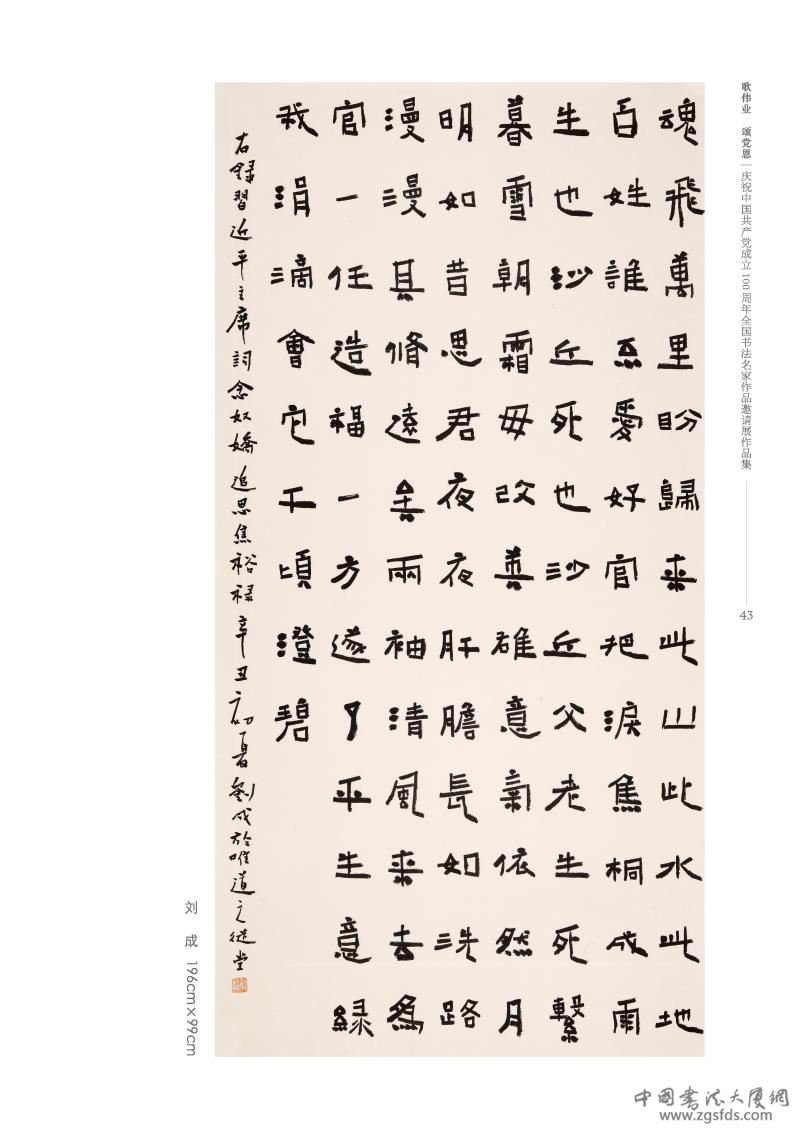 歌伟业 颂党恩 | 庆祝中国共产党成立100周年全国书法名家作品邀请展作品集
43
魂飛萬里盼歸来此山此水此地
百姓誰不愛好官把淚焦桐成雨
生也沙丘死也沙丘父老生死繫
暮雪朝霜毋改英雄意氣依然月
明如昔思君夜夜肝膽長如洗路
漫漫其脩遠矣兩袖清風来去為
官一任造福一方遂了平生意綠
我涓滴會它千頃澄碧
右録習近平主席詞念奴嬌追思焦裕禄辛丑初夏劉成於唯道之從堂
刘 成 196cm×99cm
中国書法大厦網
www.zgsfds.com